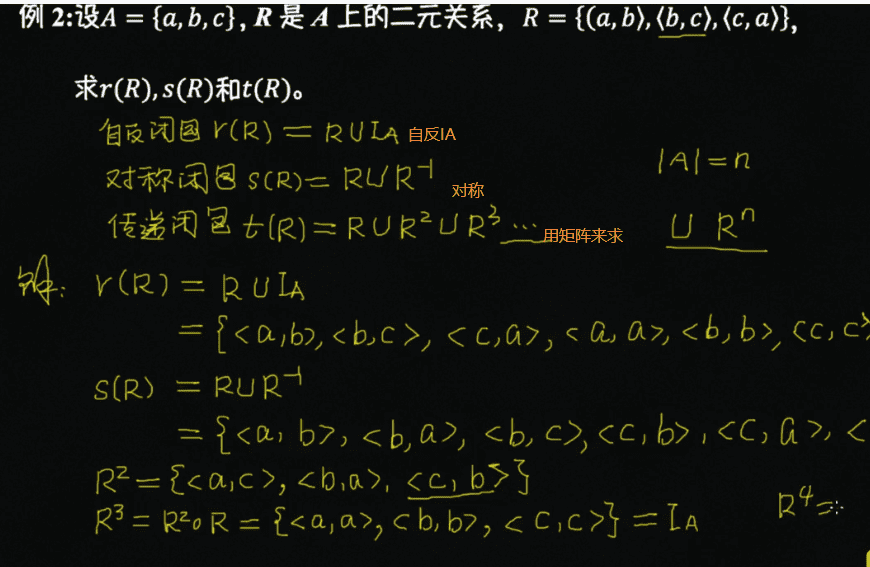 例 2:设A = {a, b, c}, R 是 A 上的二元关系，R = {⟨a, b⟩, ⟨b, c⟩, ⟨c, a⟩},
求r(R), s(R)和t(R)。
自反闭包 r(R) = R∪IA 自反IA
对称闭包 s(R) = R∪R⁻¹ 对称
|A| = n
传递闭包 t(R) = R∪R²∪R³ ... 用矩阵来求
∪ Rⁿ
解: r(R) = R∪IA
= {<a,b>,<b,c>, <c,a>,<a,a>,<b,b>,<c,c>
s(R) = R∪R⁻¹
= {<a, b>, <b,a>, <b, c>,<c,b>, <c,a>, <
R² = {<a,c>,<b,a>, <c,b>}
R³ = R²∘R = {<a,a>,<b,b>,<c,c>} = IA
R⁴ =